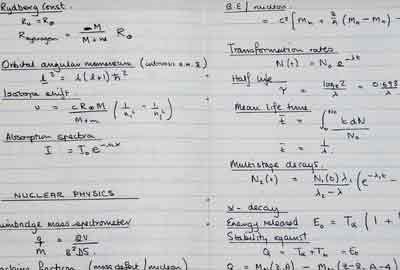 Rydberg Const.
R∞ = R∞
R_Hydrogen = M / (M + m) R∞
Orbital angular momentum
l² = l(l+1) ħ²
Isotope shift.
ν = c R∞ M / (M + m) (1/n₁² - 1/n₂²)
Absorption spectra
I =
NUCLEAR PHYSICS
Bainbridge mass spectrometer
q/M = 2V / B²D
fraction (mass defect / nucleon)
B.E / nucleon
= c² [ Mn + Z/A (
Transformation rates
N(t) = N₀ e^-λt
Half life
τ = loge 2 / λ = 0.693 / λ
Mean life time
t̄ = ∫ t dN / N₀
t̄ = 1/λ
Multistage decays.
N₂(t) = N₁(0) λ₁ / (λ₂ - λ₁) (e^-λ₁t -
α - decay
Energy released E₀ = Tα (1 +
Stability against
Q = Tα + Tb = E₀
Q = M (Z,A) - M (Z-2, A-4)